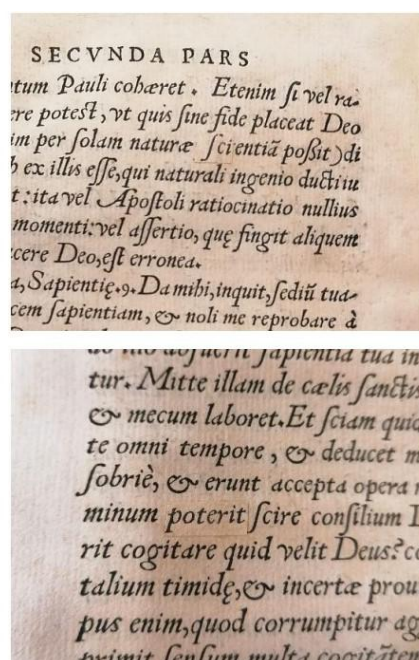 SECVNDA PARS
tum Pauli cohæret. Etenim ſi vel ra-
ere poteſt, vt quis ſine fide placeat Deo
im per ſolam naturæ ſcientiã poßit) di
ex illis eſſe, qui naturali ingenio ducti iu
t: ita vel Apoſtoli ratiocinatio nullius
momenti: vel aſſertio, quę fingit aliquem
cere Deo, eſt erronea.
a, Sapientię.9. Da mihi, inquit, ſediũ tua-
cem ſapientiam, & noli me reprobare à
ſapientia tua in
tur. Mitte illam de cælis ſanctis
& mecum laboret. Et ſciam quid
te omni tempore, & deducet m
ſobriè, & erunt accepta opera
minum poterit ſcire conſilium
rit cogitare quid velit Deus? co
talium timidę, & incertæ prou
pus enim, quod corrumpitur ag
primit ſenſum multa cogitãtem